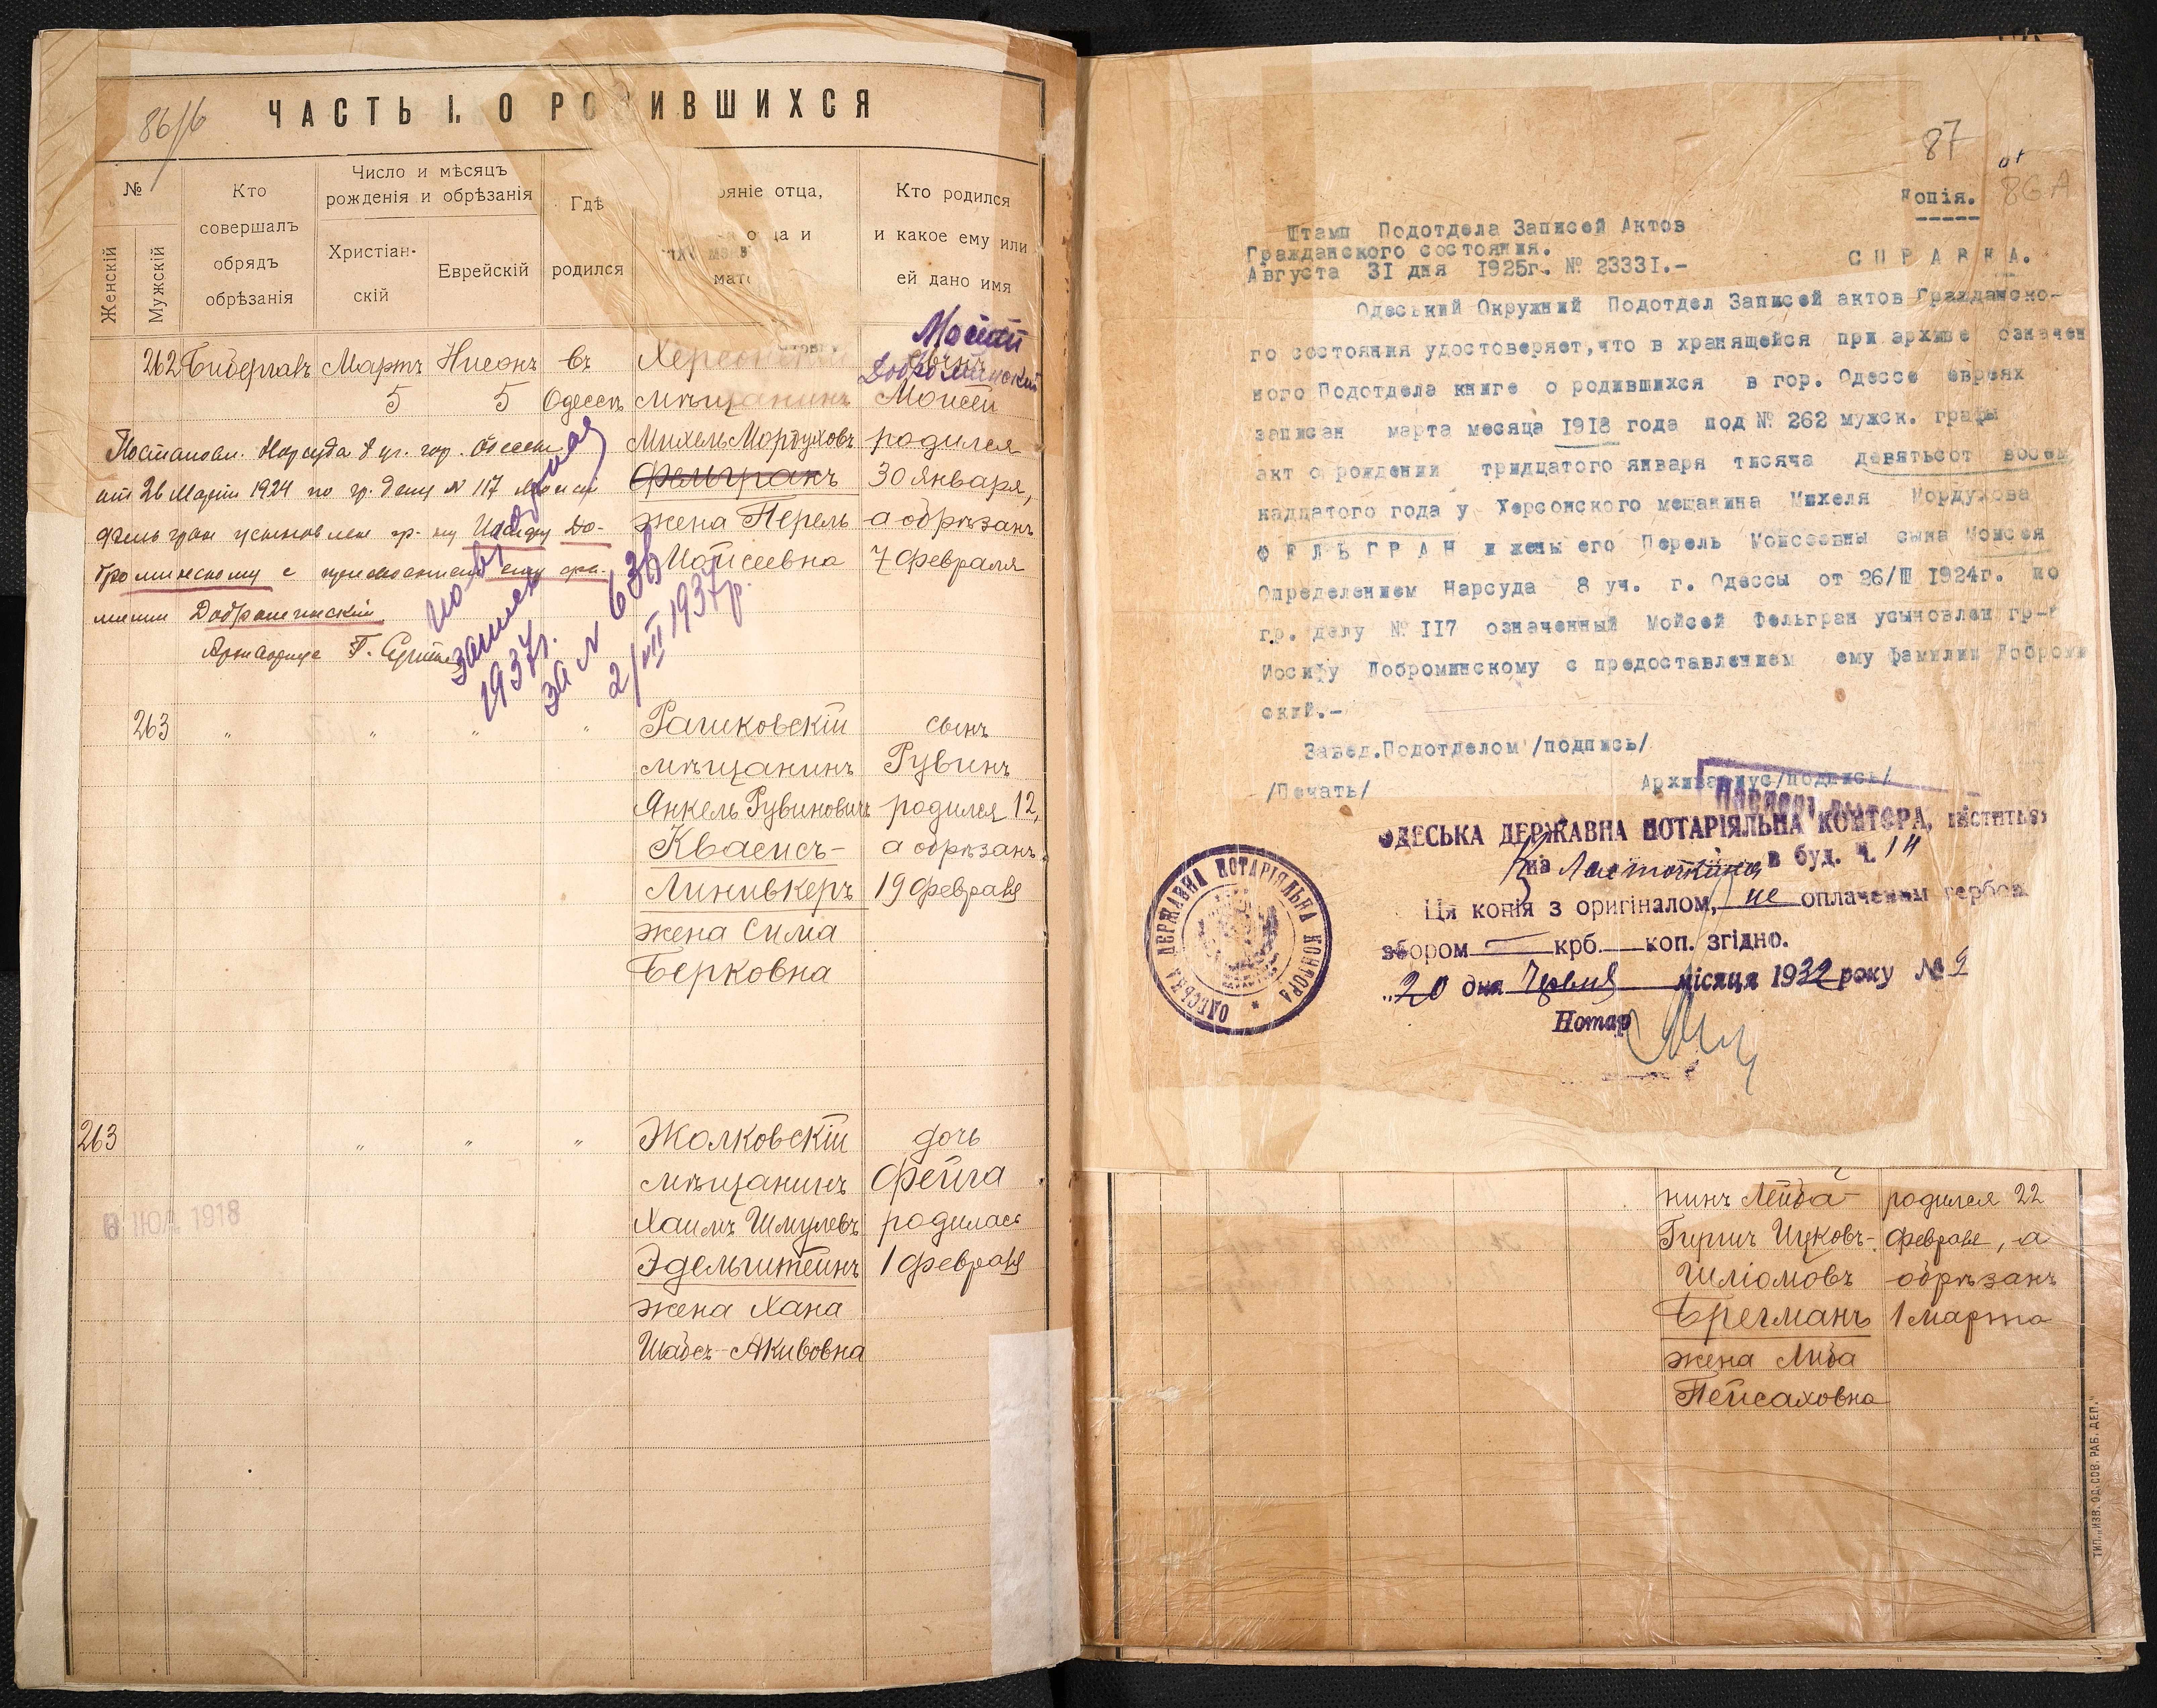 86/б
ЧАСТЬ I. О РО ИВШИХСЯ
№
Женскій
Мужскій
Кто
совершалъ
обрядъ
обрѣзанія
Число и мѣсяцъ
рожденія и обрѣзанія
Христіан-
скій
Еврейскій
Гдѣ
родился
ояніе отца,
и
мат
Кто родился
и какое ему или
ей дано имя
262 Мартъ Нисонъ въ Херсонскій
5 5 Одессѣ мѣщанинъ
Михель Мордуховъ
Фельгранъ
жена Перель
Моисеевна
Доброминский
сынъ
Моисей
родился
30 января,
а обрѣзанъ
7 февраля
Постановл. Нарсуда 8 уч. гор. Одессы
от 26 Марта 1924 по гр. делу № 117 Моисей
Фельгран усыновлен гр-ну Иосифу До-
броминскому с предоставлением ему фа-
милии Доброминский
Архивариус Г.
1937г.
за № 636
2/VII 1937р.
263 " " " " Рашковскій
мѣщанинъ
Янкель Рувиновичъ
Квасисъ-
Линивкеръ
жена Сима
Берковна
сынъ
Рувинъ
родился 12,
а обрѣзанъ
19 февраля
263 " " " Жолковскій
мѣщанинъ
Хаимъ Шмулевъ
Эдельштейнъ
жена Хана
Шабсъ-Акивовна
дочь
Фейга
родилась
1 февраля
ИЮЛ 1918
87
от
86А
Копія.
Штамп Подотдела Записей Актов
Гражданского состояния.
Августа 31 дня 1925г. № 23331.-
СПРАВКА.
Одеський Окружний Подотдел Записей актов Гражданско-
го состояния удостоверяет, что в хранящейся при архиве означен
ного Подотдела книге о родившихся в гор. Одессе евреях
записан марта месяца 1918 года под № 262 мужск. графы
акт о рождении тридцатого января тысяча девятьсот восем
надцатого года у Херсонского мещанина Михеля Мордухова
ФЕЛЬГРАН и жены его Перель Моисеевны сына Моисея
Определением Нарсуда 8 уч. г. Одессы от 26/III 1924г. по
гр. делу № 117 означенный Мойсей Фельгран усыновлен гр-н
Иосифу Доброминскому с предоставлением ему фамилии Доброми
ский.-
Завед.Подотделом /подпись/
/Печать/ Архивариус/подпись/
ОДЕСЬКА ДЕРЖАВНА НОТАРІЯЛЬНА КОНТОРА, міститься
на Ласточкина в буд. ч. 14
Ця копія з оригіналом, не оплаченим гербов
збором — крб. — коп. згідно.
„20 дня Червня місяця 1932 року № 9
Нотар
ОДЕСЬКА ДЕРЖАВНА НОТАРІЯЛЬНА КОНТОРА
нинъ Лейба-
Гиршъ Ицковъ-
Шліомовъ
Брегманъ
жена Либа
Пейсаховна
родился 22
февраля, а
обрѣзанъ
1 марта
ТИП. „ИЗВ. ОД. СОВ. РАБ. ДЕП."